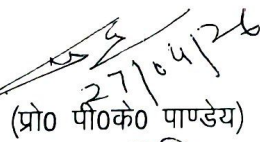 27/04/26
(प्रो0 पी0के0 पाण्डेय)